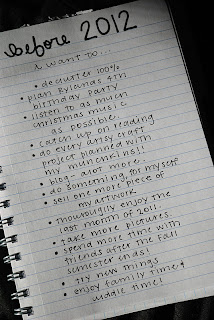 before 2012
i want to...
• declutter 100%
• plan Rylands 4th
birthday party
• listen to as much
christmas music
as possible.
• catch up on reading
• do every artsy craft
project planned with
my munchkins!!
• blog - alot more.
• do something for myself
• sell one more piece of
my artwork.
• thouroughly enjoy the
last month of 2011.
• take more pictures.
• spend more time with
friends after the fall
semester ends!
• try new things
• enjoy family time &
cuddle time!